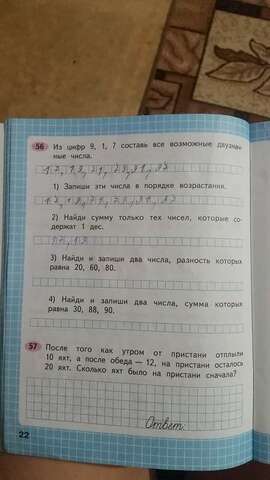 56 Из цифр 9, 1, 7 составь все возможные двузнач-
ные числа.
17, 19, 71, 79, 91, 97
1) Запиши эти числа в порядке возрастания.
17, 19, 71, 79, 91, 97
2) Найди сумму только тех чисел, которые со-
держат 1 дес.
17, 19
3) Найди и запиши два числа, разность которых
равна 20, 60, 80.
4) Найди и запиши два числа, сумма которых
равна 30, 88, 90.
57 После того как утром от пристани отплыли
10 яхт, а после обеда — 12, на пристани осталось
20 яхт. Сколько яхт было на пристани сначала?
Ответ
22